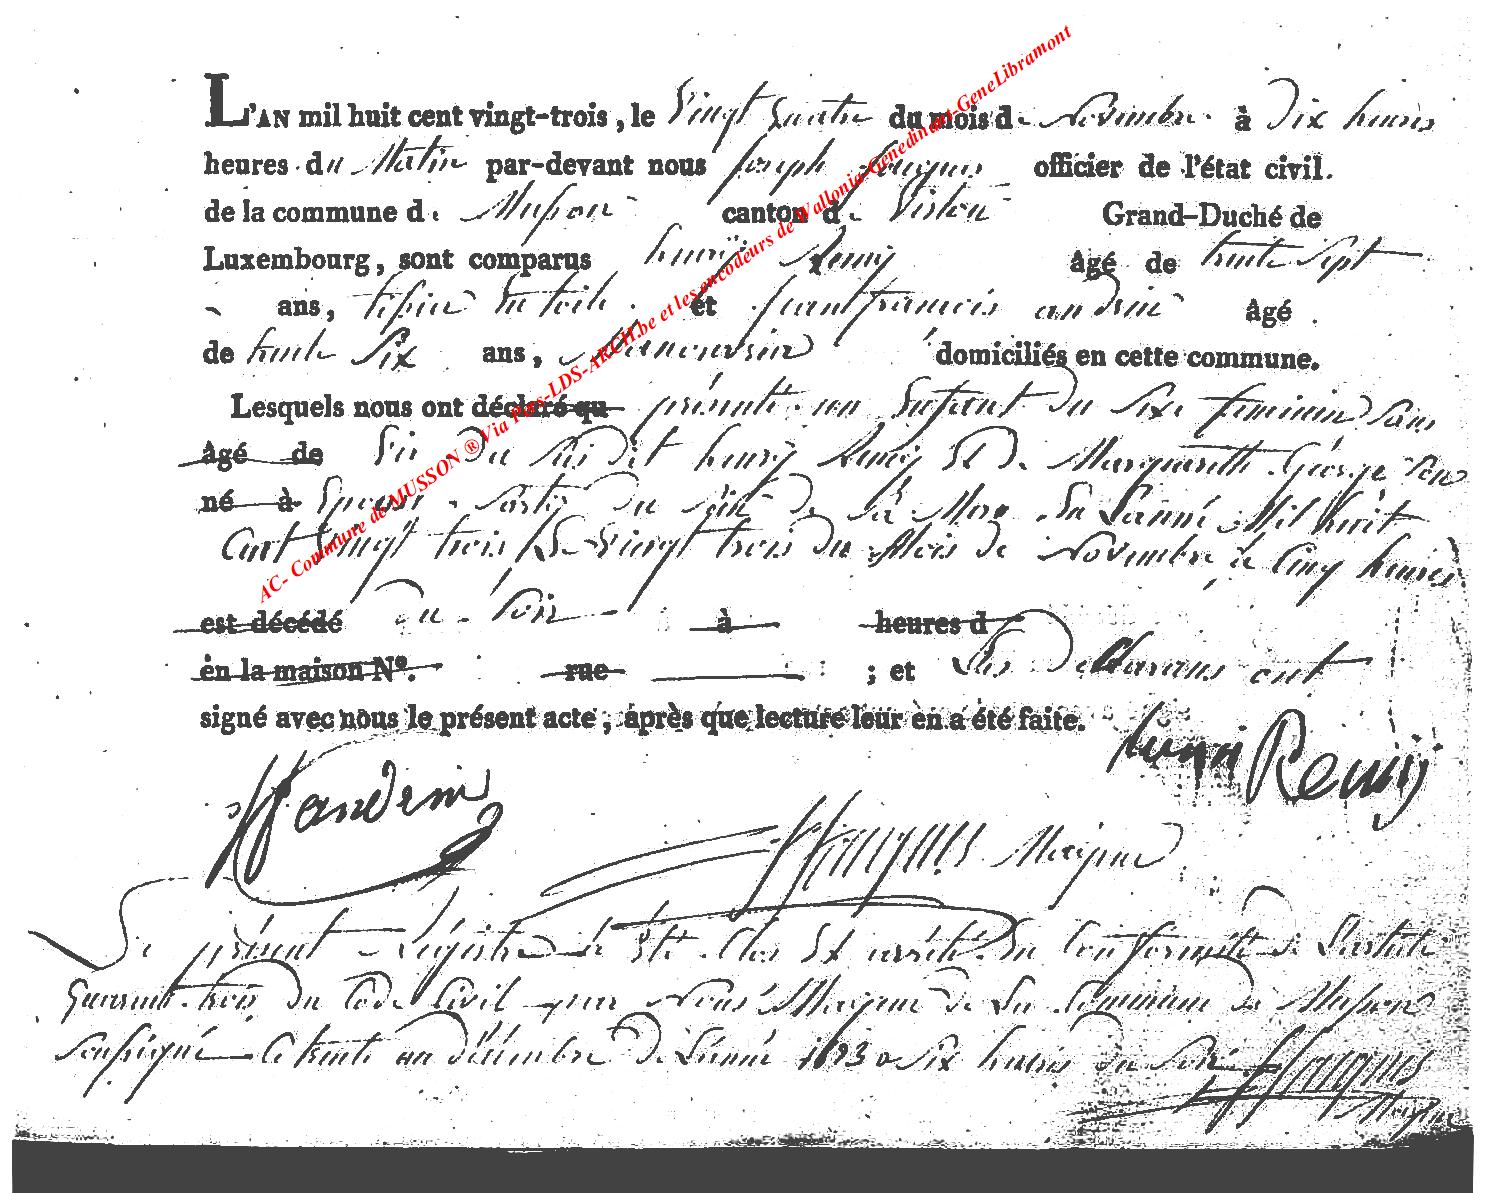 L'AN mil huit cent vingt-trois, le Vingt quatre du mois de Novembre à Dix heures
heures du Matin par-devant nous joseph officier de l'état civil.
de la commune de Musson canton de Virton Grand-Duché de
Luxembourg, sont comparus henrÿ Remÿ âgé de trente Sept
ans, et jeanfrancois andrin âgé
de trente Six ans, Manouvrier domiciliés en cette commune.
Lesquels nous ont déclaré qu présenté un Enfant du Sexe feminin Sans
âgé de Vie du Susdit henrÿ Remÿ Et De Margueritte George Son
né à Epouse Sortie du Sein De La Mere En L'anné Mil huit
Cent Vingt trois Le Vingt trois du Mois de Novembre à Cinq heures
est décédé du Soir à heures d
en la maison N°. rue ; et Les Declarans ont
signé avec nous le présent acte, après que lecture leur en a été faite.
henri Remÿ
andrin
Mayeur
Le présent Régistre à Eté Clos Et arrêté En Conformité de L'article
Quarante trois du Code Civil par Nous Mayeur de La Commune de Musson
Soussigné Ce trente un décembre De L'anné 1823 a Six heures du Soir
Mayeur
AC- Commune de MUSSON ® Via Pres-LDS-ARCH.be et les encodeurs de Wallonia-Genedinant-GeneLibramont